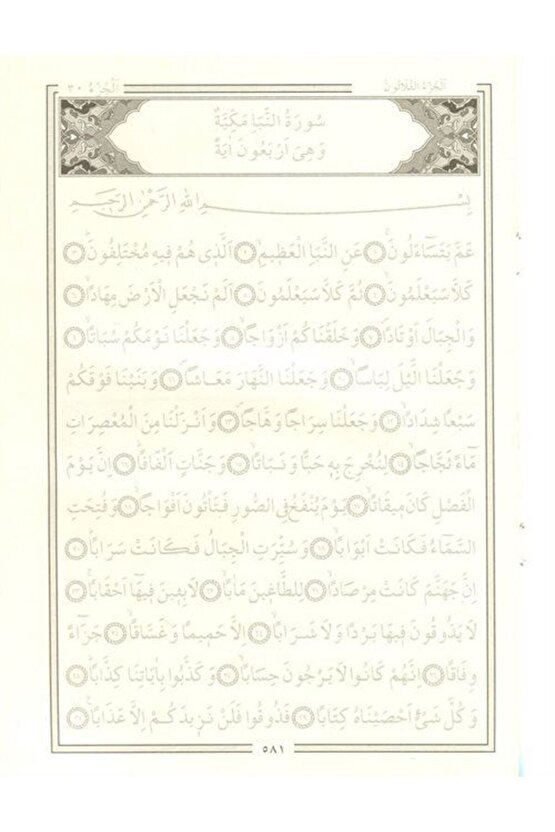 اَلْجُزْءُ الثَّلَاثُونَ
اَلْجُزْءُ ٣٠
سُورَةُ النَّبَأِ مَكِّيَّةٌ
وَهِىَ اَرْبَعُونَ اٰيَةً
بِسْمِ اللّٰهِ الرَّحْمٰنِ الرَّحِيمِ
عَمَّ يَتَسَٓاءَلُونَۚ ﴿١﴾ عَنِ النَّبَاِ الْعَظِيمِۙ ﴿٢﴾ اَلَّذِى هُمْ فِيهِ مُخْتَلِفُونَۜ ﴿٣﴾
كَلَّا سَيَعْلَمُونَۙ ﴿٤﴾ ثُمَّ كَلَّا سَيَعْلَمُونَ ﴿٥﴾ اَلَمْ نَجْعَلِ الْاَرْضَ مِهَادًاۙ ﴿٦﴾
وَالْجِبَالَ اَوْتَادًاۖ ﴿٧﴾ وَخَلَقْنَاكُمْ اَزْوَاجًاۙ ﴿٨﴾ وَجَعَلْنَا نَوْمَكُمْ سُبَاتًاۙ ﴿٩﴾
وَجَعَلْنَا الَّيْلَ لِبَاسًاۙ ﴿١٠﴾ وَجَعَلْنَا النَّهَارَ مَعَاشًاۖ ﴿١١﴾ وَبَنَيْنَا فَوْقَكُمْ
سَبْعًا شِدَادًاۙ ﴿١٢﴾ وَجَعَلْنَا سِرَاجًا وَهَّاجًاۖ ﴿١٣﴾ وَاَنْزَلْنَا مِنَ الْمُعْصِرَاتِ
مَٓاءً ثَجَّاجًاۙ ﴿١٤﴾ لِنُخْرِجَ بِهِ حَبًّا وَنَبَاتًاۙ ﴿١٥﴾ وَجَنَّاتٍ اَلْفَافًاۜ ﴿١٦﴾ اِنَّ يَوْمَ
الْفَصْلِ كَانَ مِيقَاتًاۙ ﴿١٧﴾ يَوْمَ يُنْفَخُ فِى الصُّورِ فَتَأْتُونَ اَفْوَاجًاۙ ﴿١٨﴾ وَفُتِحَتِ
السَّمَٓاءُ فَكَانَتْ اَبْوَابًاۙ ﴿١٩﴾ وَسُيِّرَتِ الْجِبَالُ فَكَانَتْ سَرَابًاۜ ﴿٢٠﴾
اِنَّ جَهَنَّمَ كَانَتْ مِرْصَادًاۙ ﴿٢١﴾ لِلطَّاغِينَ مَاٰبًاۙ ﴿٢٢﴾ لَابِثِينَ فِيهَٓا اَحْقَابًاۚ ﴿٢٣﴾
لَا يَذُوقُونَ فِيهَا بَرْدًا وَلَا شَرَابًاۙ ﴿٢٤﴾ اِلَّا حَمِيمًا وَغَسَّاقًاۙ ﴿٢٥﴾ جَزَٓاءً
وِفَاقًاۜ ﴿٢٦﴾ اِنَّهُمْ كَانُوا لَا يَرْجُونَ حِسَابًاۙ ﴿٢٧﴾ وَكَذَّبُوا بِاٰيَاتِنَا كِذَّابًاۜ ﴿٢٨﴾
وَكُلَّ شَىْءٍ اَحْصَيْنَاهُ كِتَابًاۙ ﴿٢٩﴾ فَذُوقُوا فَلَنْ نَزِيدَكُمْ اِلَّا عَذَابًاۚ ﴿٣٠﴾
٥٨١